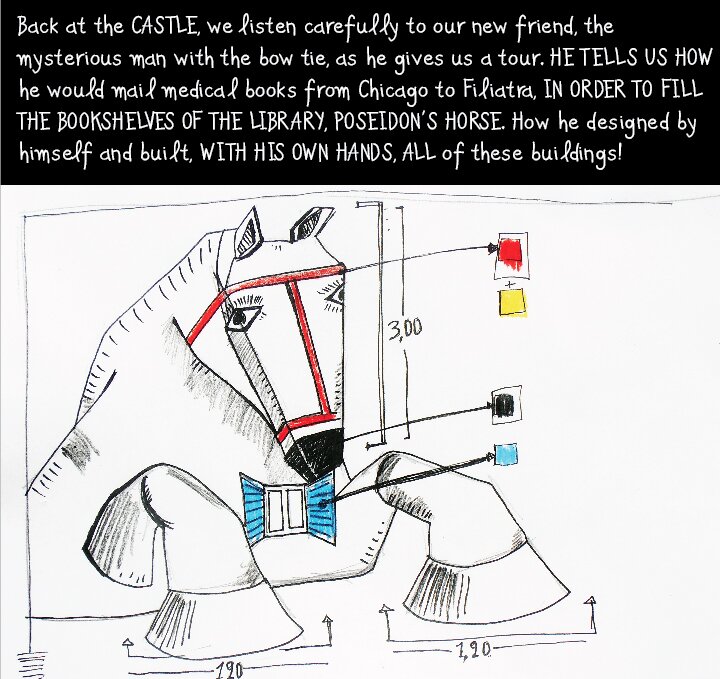 Back at the CASTLE, we listen carefully to our new friend, the
mysterious man with the bow tie, as he gives us a tour. HE TELLS US HOW
he would mail medical books from Chicago to Filiatra, IN ORDER TO FILL
THE BOOKSHELVES OF THE LIBRARY, POSEIDON'S HORSE. How he designed by
himself and built, WITH HIS OWN HANDS, ALL of these buildings!
+
3,00
120
1,20